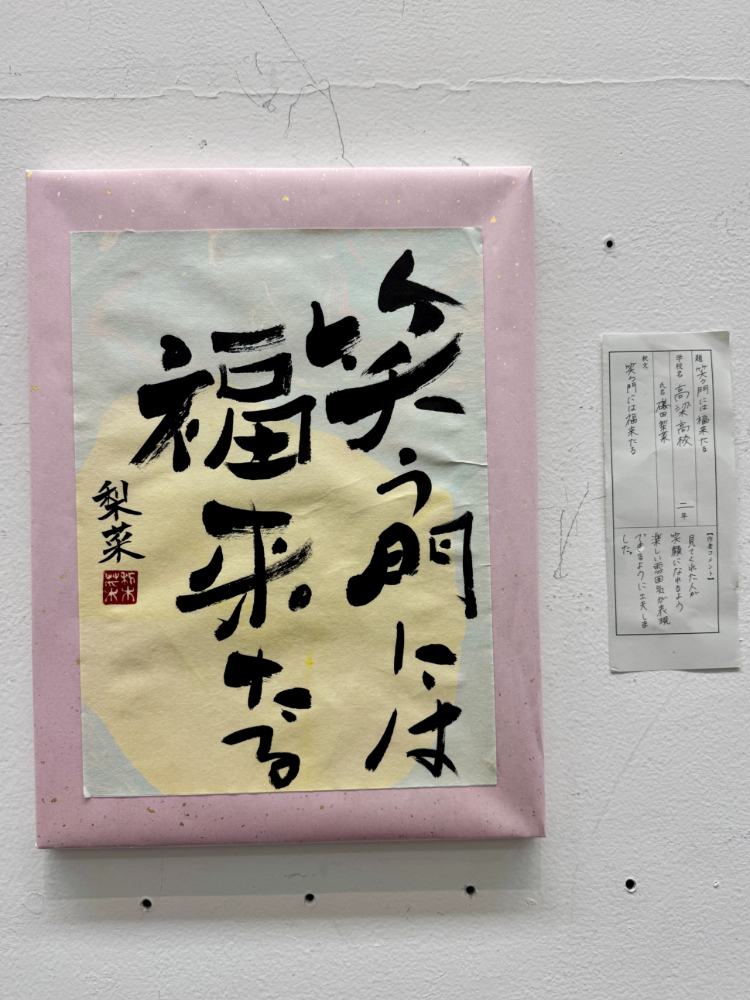 笑う門には
福来たる
梨菜
題 笑う門には福来たる
学校名 高梁高校 二年
氏名 田梨菜
釈文
笑う門には福来たる
【作者コメント】
見てくれた人が
笑顔になれるよう
楽しい雰囲気が表現
できるように工夫しま
した。